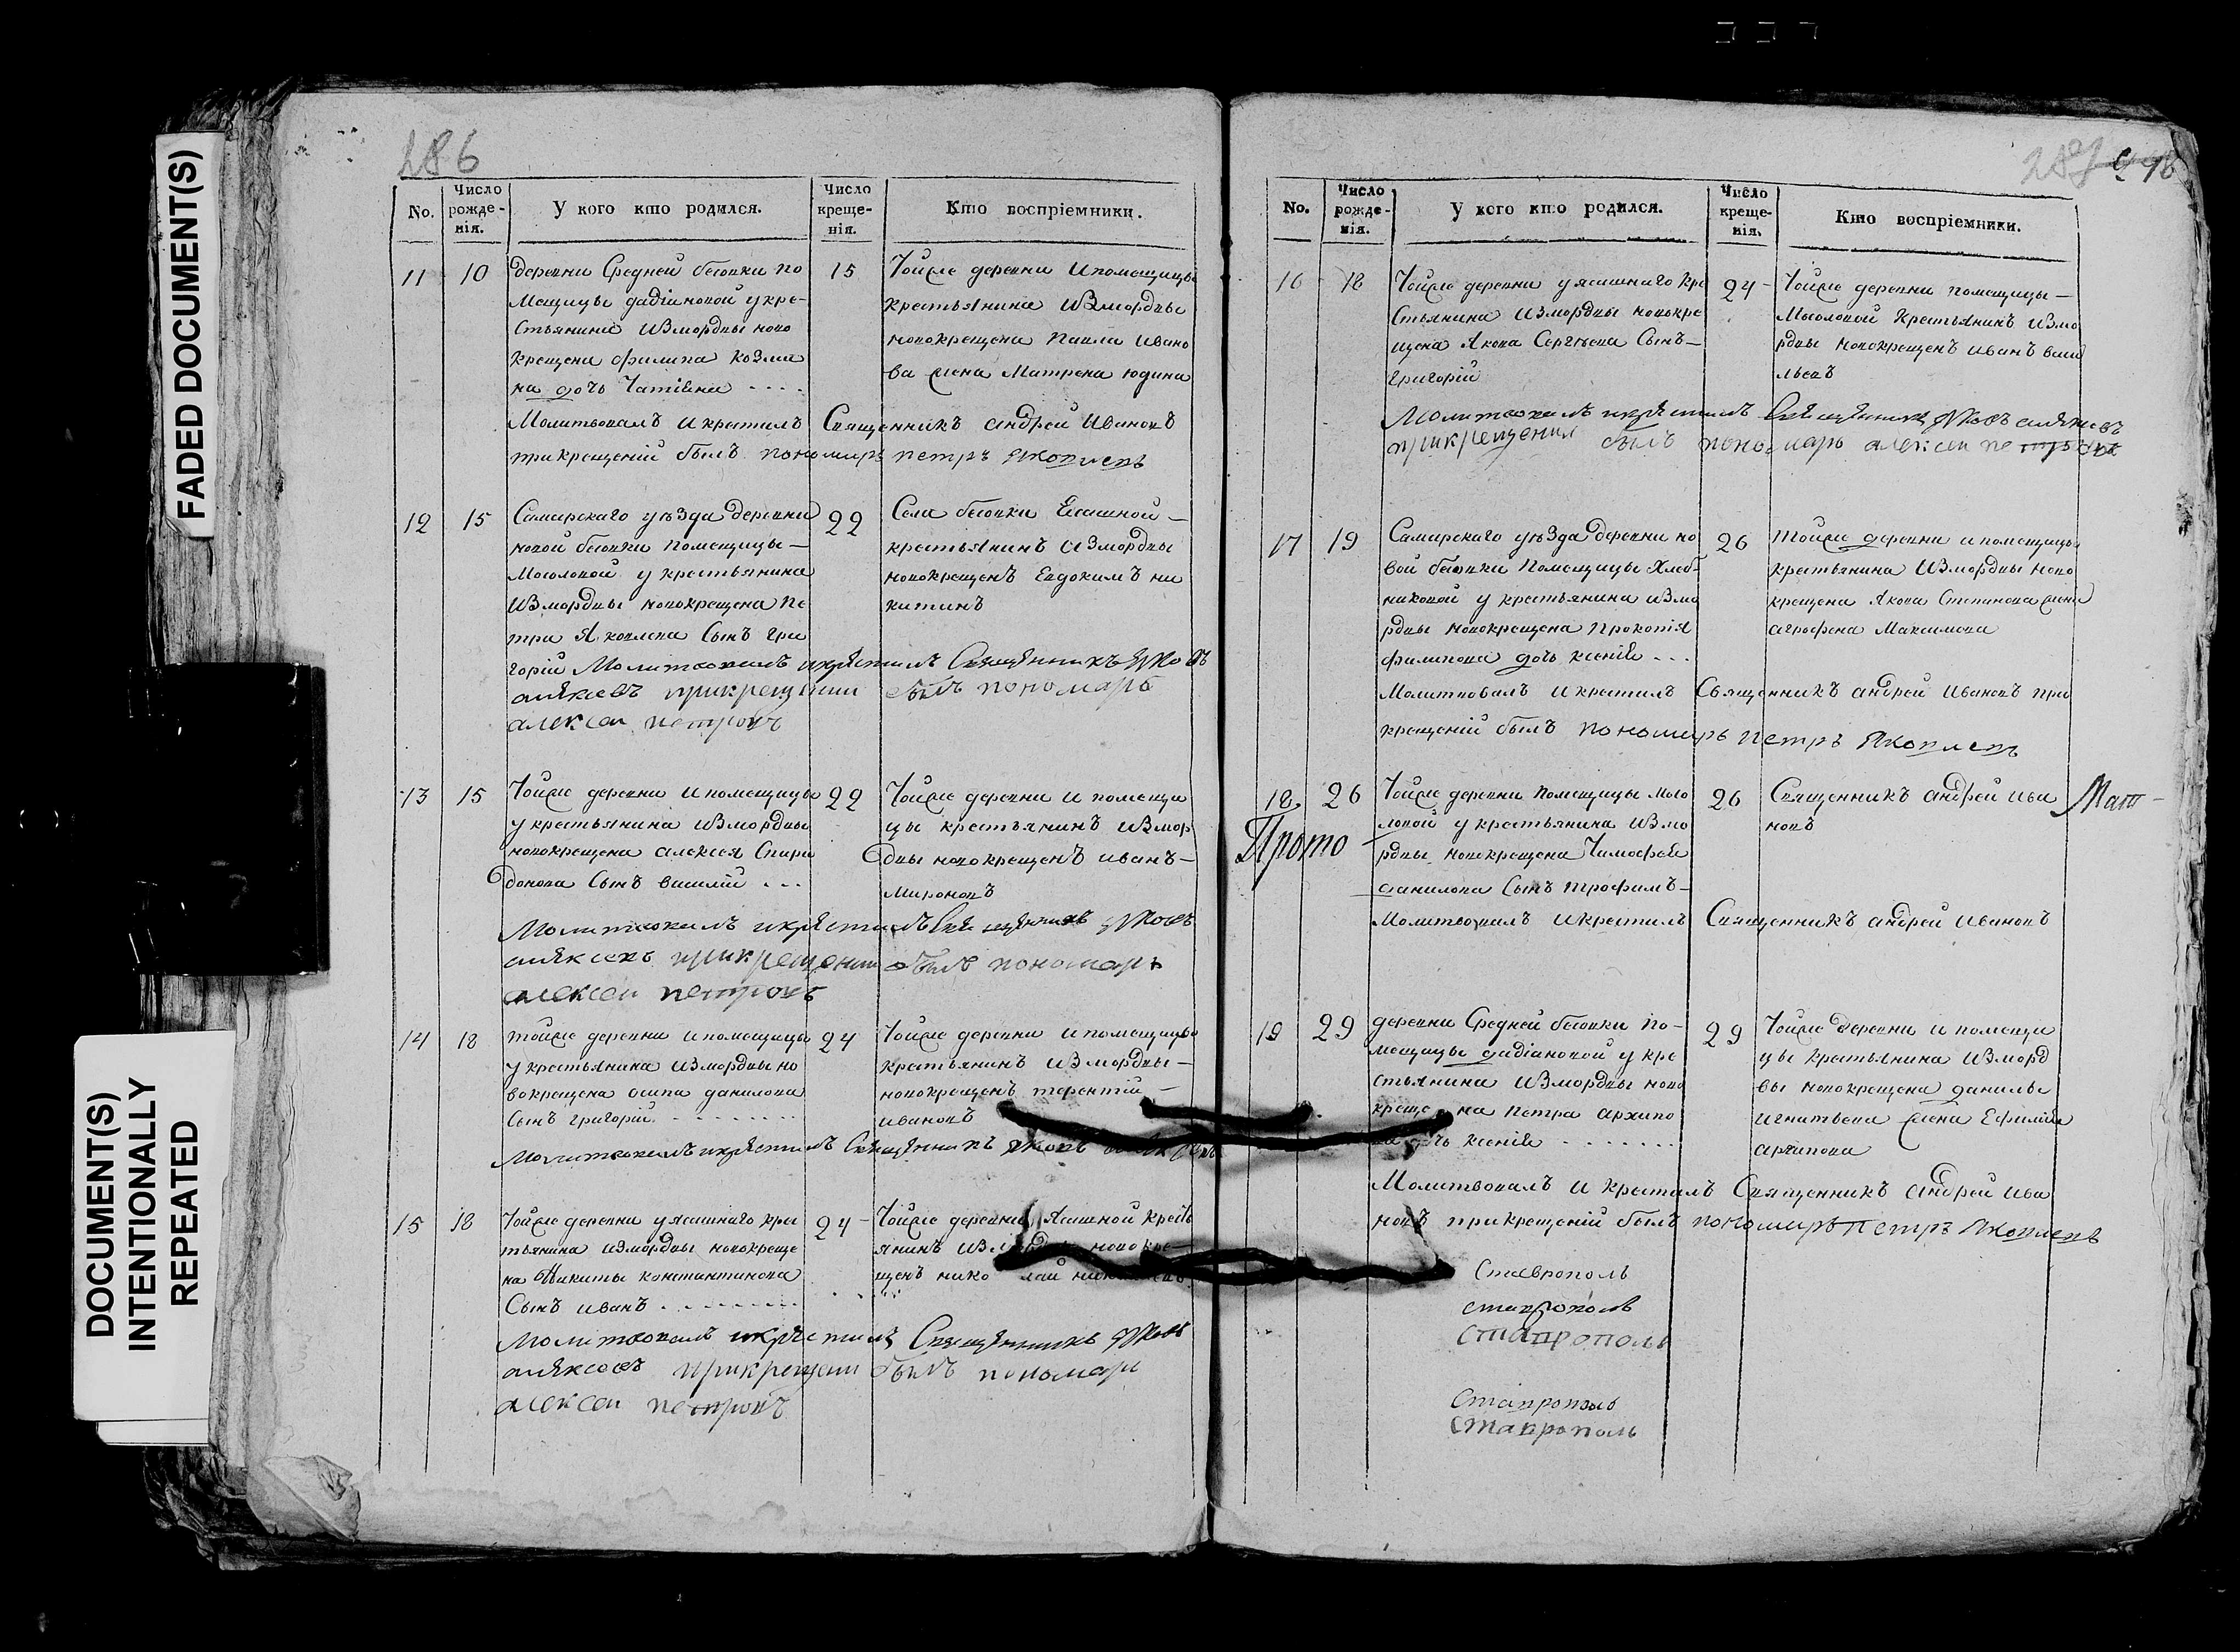 FADED DOCUMENT(S)
DOCUMENT(S)
INTENTIONALLY
REPEATED
286
No.
Число рожденія.
У кого кто родился.
Число крещенія.
Кто воспріемники.
11
10
деревни Средней бесовки по
мещицы дадіановой укре-
стьянина измордвы ново
крещена филипа козми
на дочь Татіяна
15
Тойже деревни ипомещицы
крестьянина измордвы
новокрещена Павла ивано
ва жена Матрена юдина
Молитвовалъ икрестилъ Священникъ андрей ивановъ
прикрещеній былъ пономарь петръ яковлевъ
12
15
Самарскаго уѣзда деревни
новой бесовки помещицы —
Мосоловой у крестьянина
измордвы новокрещена пе
тра яковлева Сынъ гри
горій
22
Села бесовки Ясашной —
крестьянинъ измордвы
новокрещенъ Евдокимъ ни
китинъ
Молитвовалъ икрестилъ Священникъ
прикрещении былъ пономарь
алексеи петровъ
13
15
Тойже деревни ипомещицы
у крестьянина измордвы
новокрещена алексея Спири
донова Сынъ василій
22
Тойже деревни и помещи
цы крестьянинъ измор
двы новокрещенъ иванъ —
мироновъ
Молитвовалъ икрестилъ Священникъ
прикрещении былъ пономарь
алексеи петровъ
14
18
тойже деревни ипомещицы
у крестьянина измордвы но
вокрещена осипа данилова
Сынъ григорій
24
Тойже деревни ипомещицы
крестьянинъ измордвы —
новокрещенъ терентій —
ивановъ
Молитвовалъ икрестилъ Священникъ яковъ
15
18
Тойже деревни уясашнаго крес
тьянина измордвы новокреще
на Никиты константинова
Сынъ иванъ
24
Тойже деревни Ясашной кресть
янинъ новокре
щенъ николай
Молитвовалъ икрестилъ Священникъ
прикрещени былъ пономарь
алексеи петровъ
287
No.
Число рожденія.
У кого кто родился.
Число крещенія.
Кто воспріемники.
16
18
Тойже деревни уясашнаго кре
стьянина измордвы новокре
щена Якова Сергѣева Сынъ —
григорій
24
Тойже деревни помещицы —
Мосоловой крестьянинъ измо
рдвы новокрещенъ иванъ васи
льевъ
Молитвовалъ икрестилъ Священникъ
прикрещения былъ пономарь алексеи петровъ
17
19
Самарскаго уѣзда деревни но
вой бесовки помещицы Хлеб-
никовой у крестьянина измо
рдвы новокрещена прокопія
филипова дочь ксенія
26
тойже деревни ипомещицы
крестьянина измордвы ново
крещена якова Степанова жена
агрофена Максимова
Молитвовалъ икрестилъ Священникъ андрей ивановъ при
крещеній былъ пономарь петръ яковлевъ
18
26
Тойже деревни помещицы мосо
ловой у крестьянина измо
рдвы новокрещена Тимофея
данилова Сынъ трофимъ —
26
Священникъ андрей ива
новъ
Прото
Мат-
Молитвовалъ икрестилъ Священникъ андрей ивановъ
19
29
деревни Средней бесовки по-
мещицы дадіановой у кре
стьянина измордвы ново
крещена петра архипо
ва дочь ксенія
29
Тойже деревни и помещи
цы крестьянина изморд
вы новокрещена данилы
игнатьева жена Ефимия
архипова
Молитвовалъ и крестилъ Священникъ андрей ива
новъ прикрещеній былъ пономарь петръ яковлевъ
Ставрополь
ставрополь
ставрополь
Ставрополь
Ставрополь